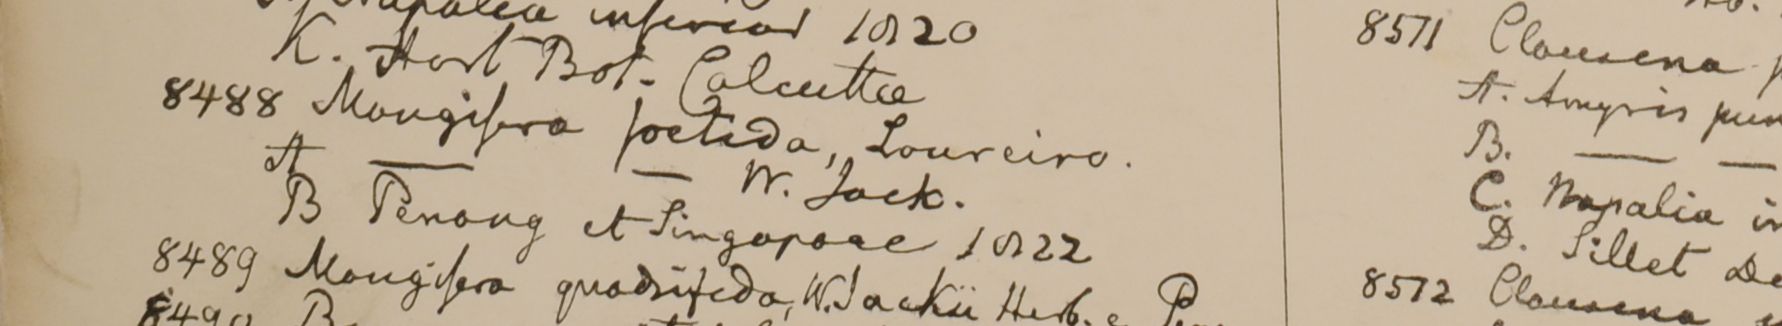 Napalia inferior 1820
K. Hort Bot. Calcutta
8488 Mangifera foetida, Loureiro.
A — — W. Jack.
B Penang et Singapore 1822
8489 Mangifera quadrifida, W. Jackii Herb. e
8490
8571 Clausena
A. Amyris pun
B. — —
C. Napalia in
D. Sillet De
8572 Clausena